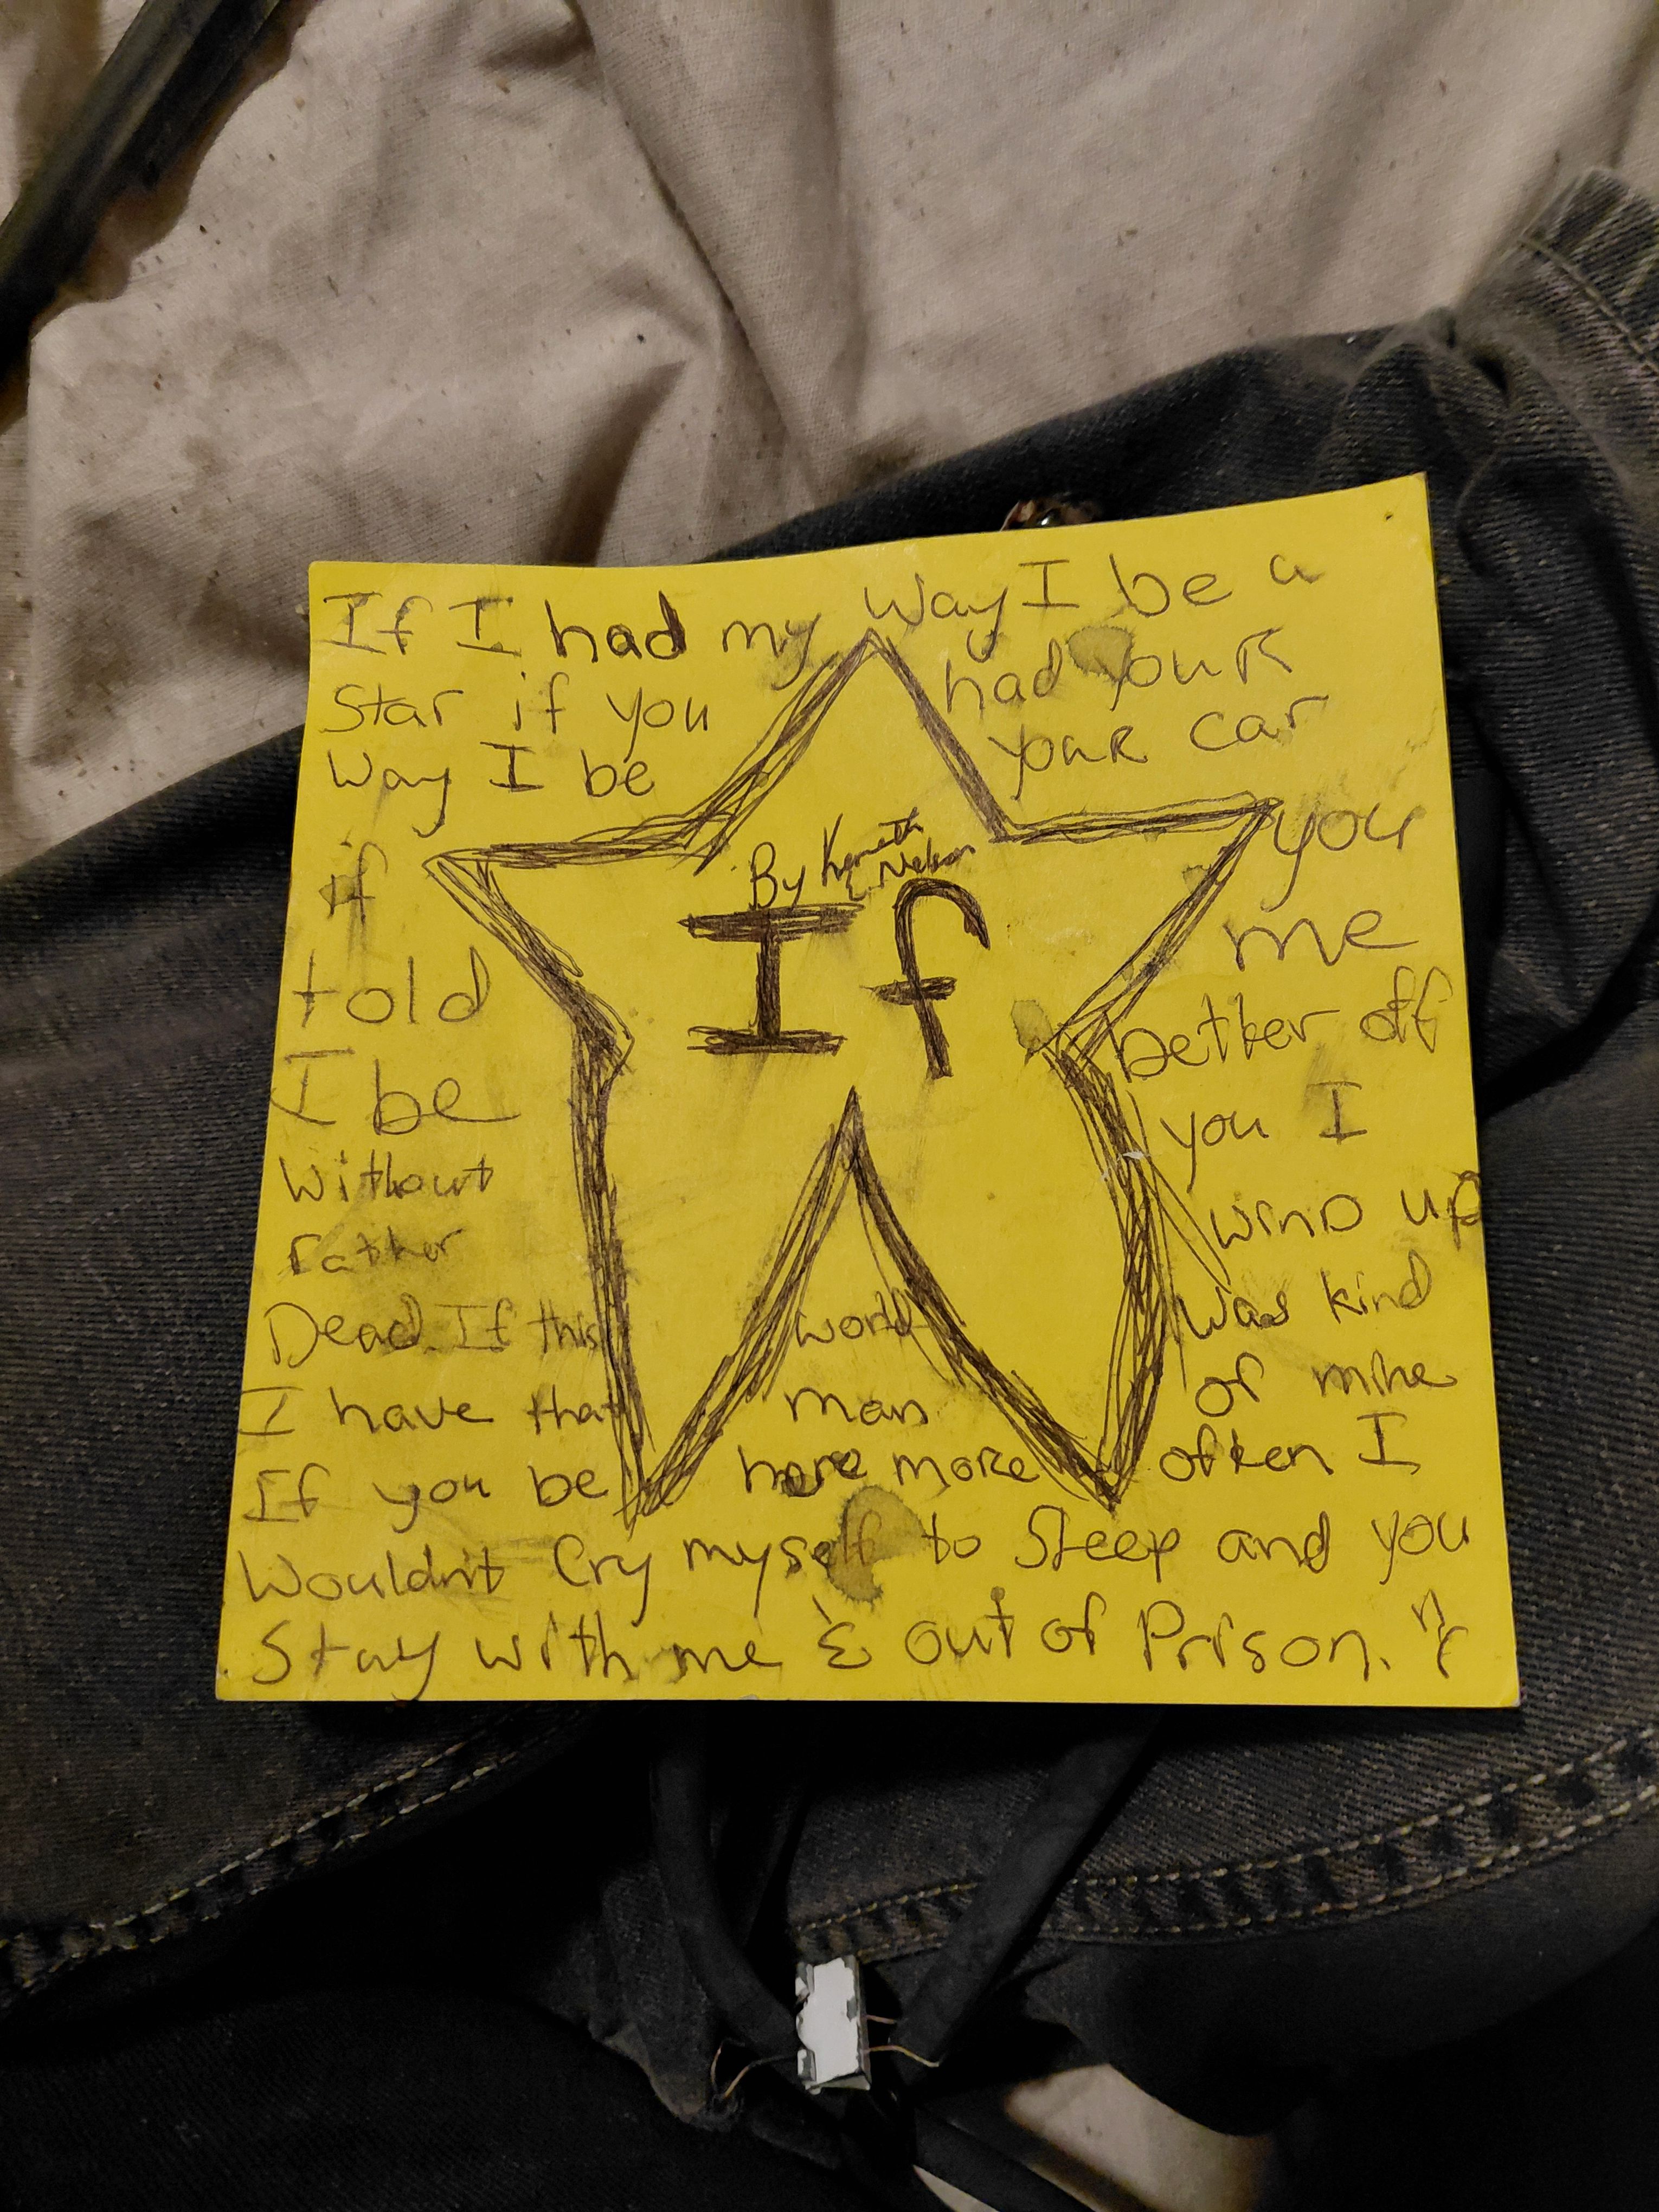 If I had my way I be a
star if you had youR
way I be youR car
if you
told me
I be better off
without you I
rather wind up
Dead. If this world was kind
I have that man of mine
If you be here more often I
Wouldn't Cry myself to Sleep and you
Stay with me & out of Prison.
By Kenneth
L Nelson
If